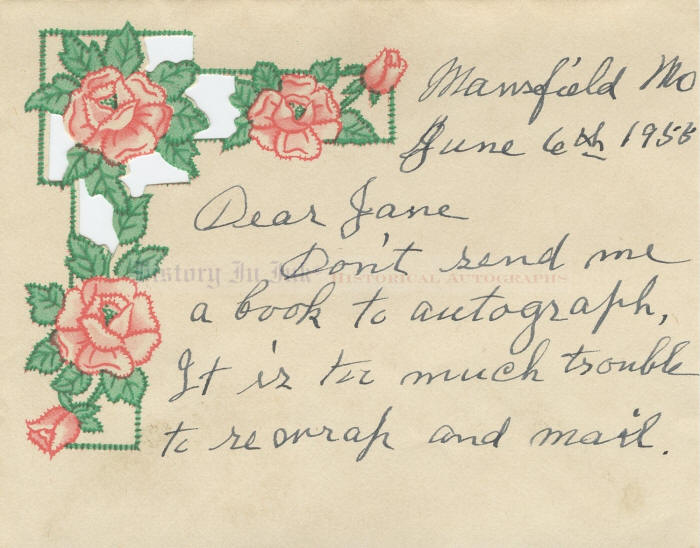 Mansfield Mo
June 6th
Dear Jane
Don't send me
History In Ink HISTORICAL AUTOGRAPHS
a book to autograph,
It is too much trouble
to rewrap and mail.